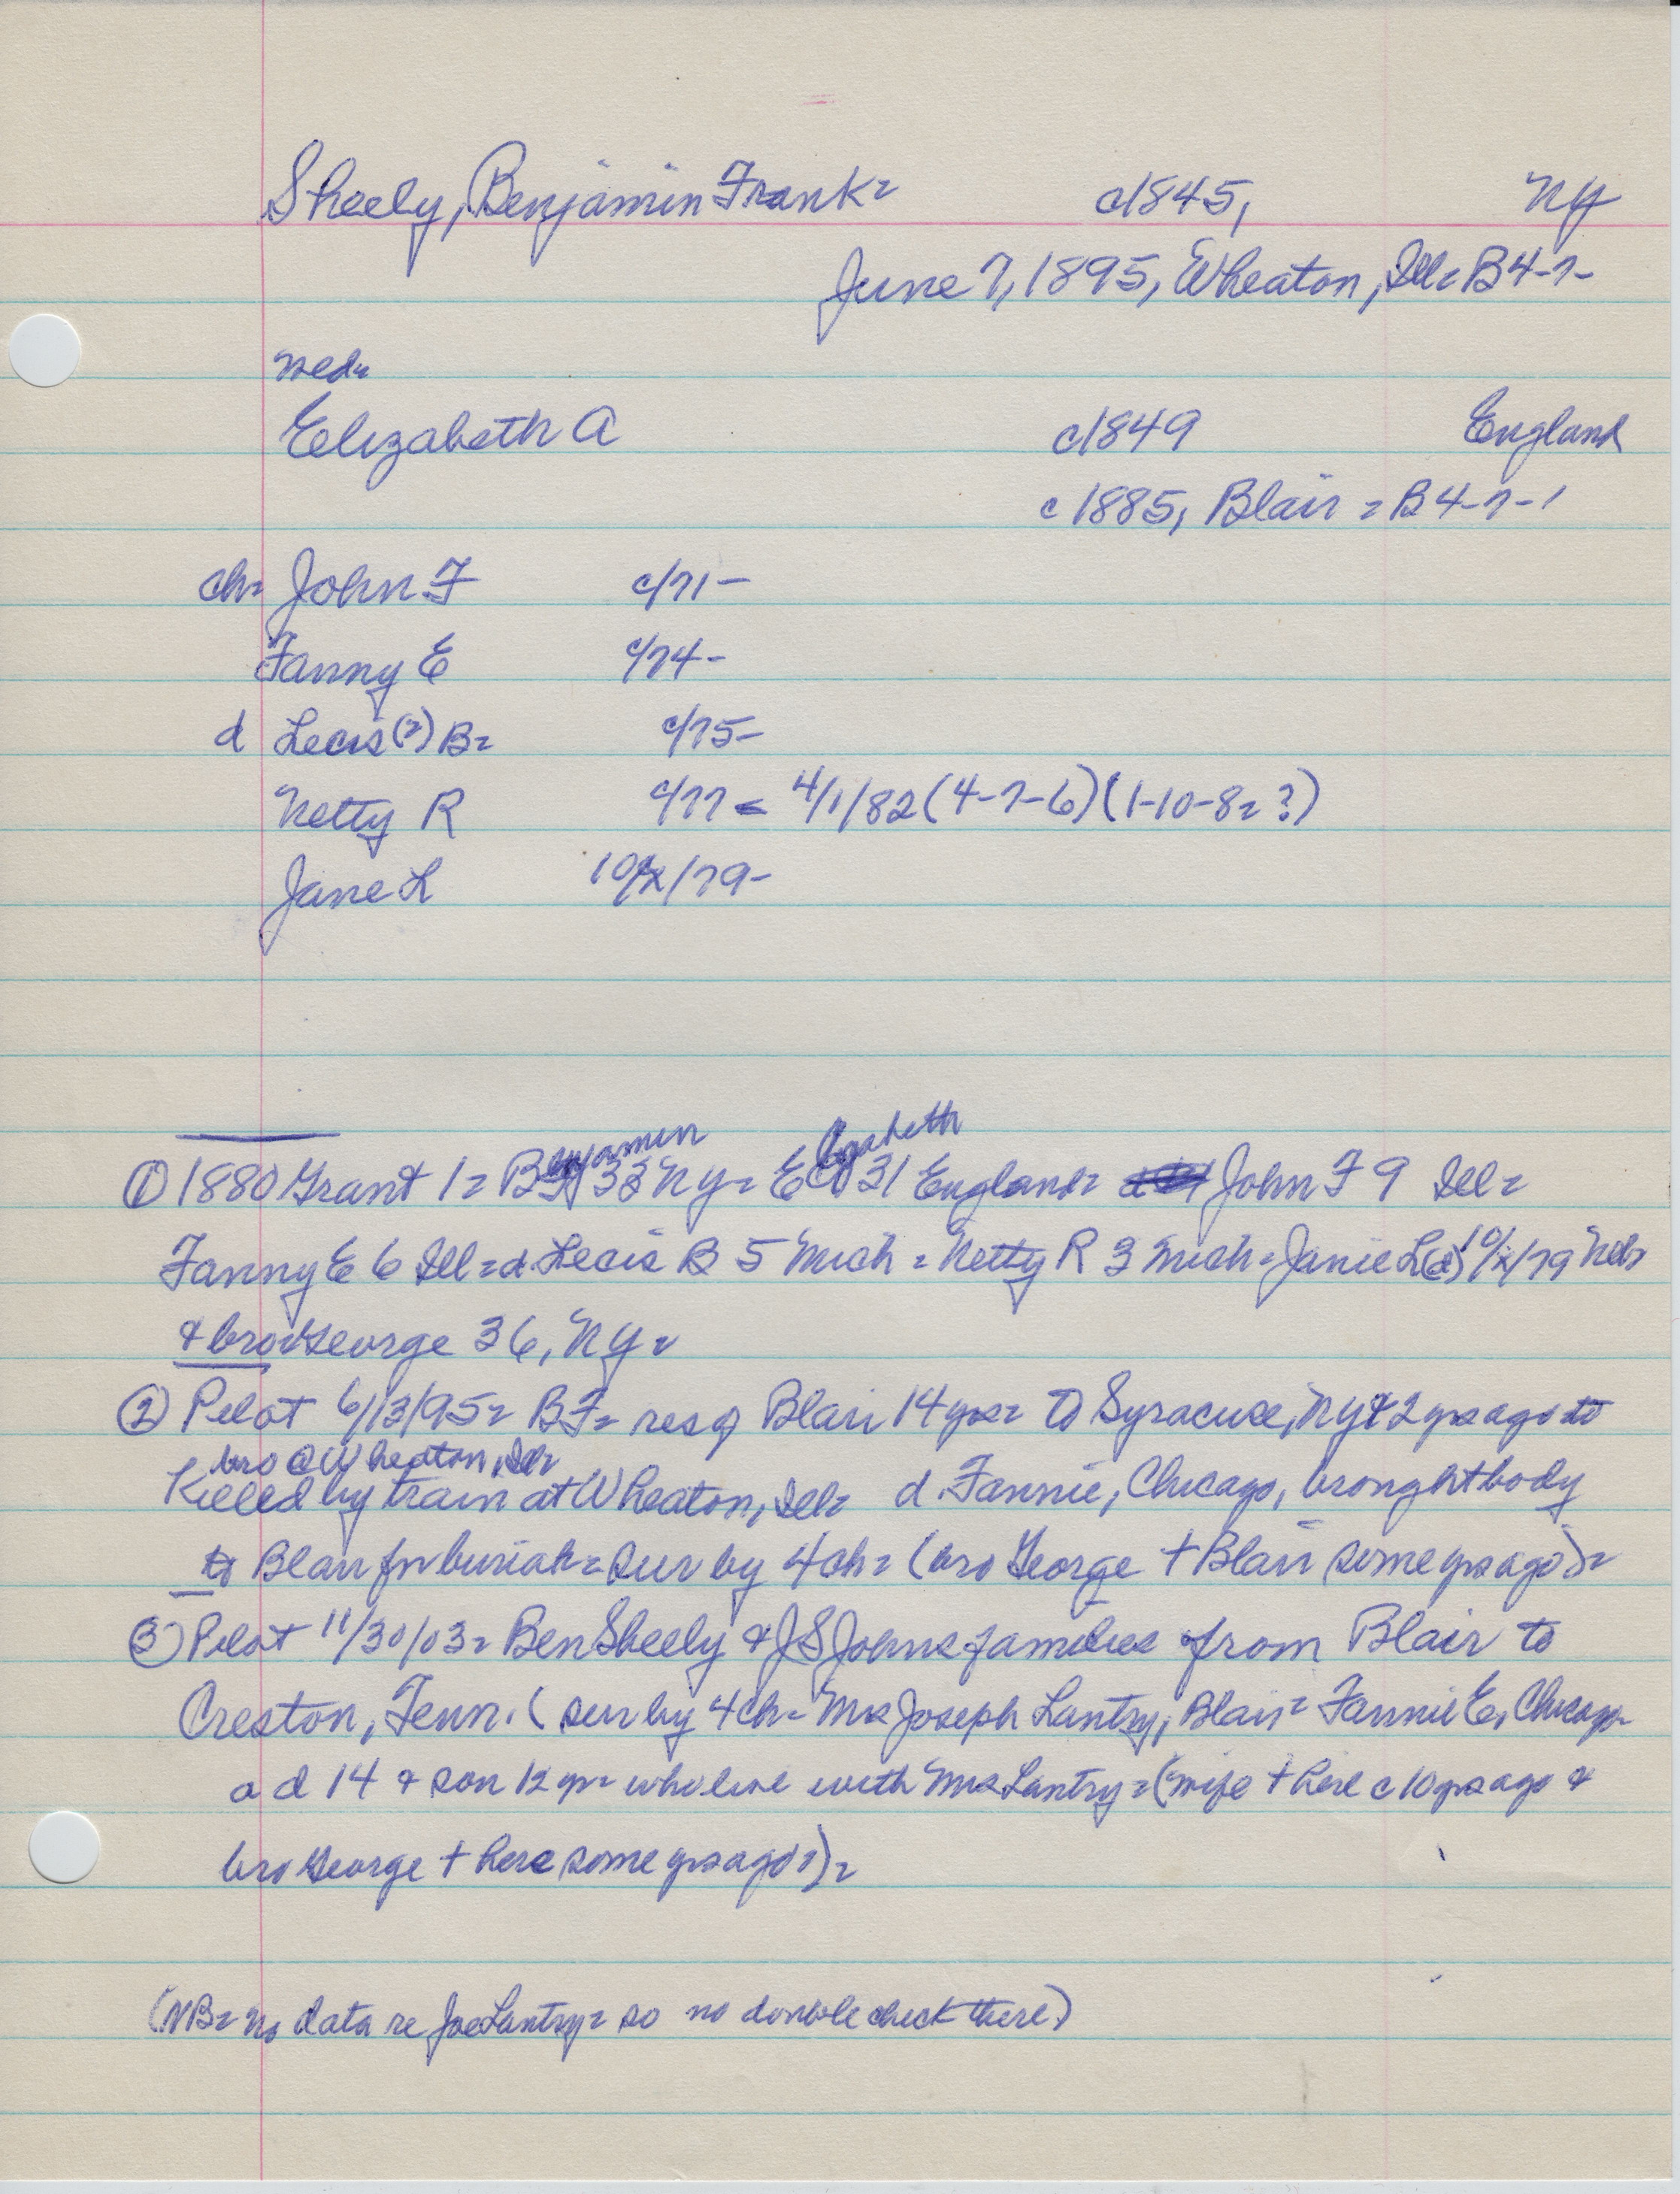 Sheely, Benjamin Frank= c1845, NY
June 7, 1895, Wheaton, Ill= B4-7-
med=
Elizabeth A c1849 England
c1885, Blair = B4-7-1
ch= John F c/71-
Fanny E c/74-
d Lecis(?) B= c/75-
Netty R c/77 = 4/1/82 (4-7-6) (1-10-8= ?)
Jane L 10/x/79-
① 1880 Grant 1= Benjamin 33 NY= Elizabeth 31 England= John F 9 Ill=
Fanny E 6 Ill= d. Lecis B 5 Mich = Netty R 3 Mich= Janie L(d) 10/x/79 Neb=
& bro George 36, NY=
② Pilot 6/13/95= BF= res of Blair 14 yrs= to Syracuse, NY & 2 yrs ago to
bro @ Wheaton, Ill=
Killed by train at Wheaton, Ill= d. Fannie, Chicago, brought body
to Blair for burial= sur by 4 ch= (bro George + Blair some yrs ago)=
③ Pilot 11/30/03= Ben Sheely & J S Johns families from Blair to
Creston, Tenn. (sur by 4 ch= Mrs Joseph Lantry, Blair= Fannie E, Chicago=
a d 14 & son 12 yr= who live with Mrs Lantry= (wife + here c 10 yrs ago &
bro George + here some yrs ago?)=
(NB= no data re Joe Lantry= so no double check there)